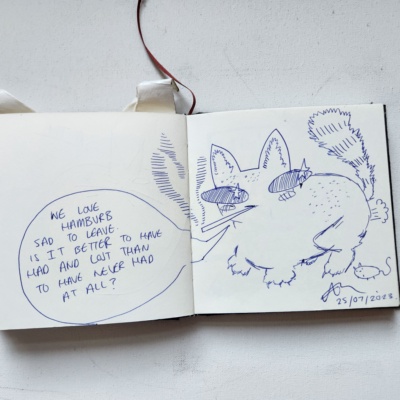 WE LOVE
HAMBURB
SAD TO LEAVE
IS IT BETTER TO HAVE
HAD AND LOST THAN
TO HAVE NEVER HAD
AT ALL?
25/07/2023